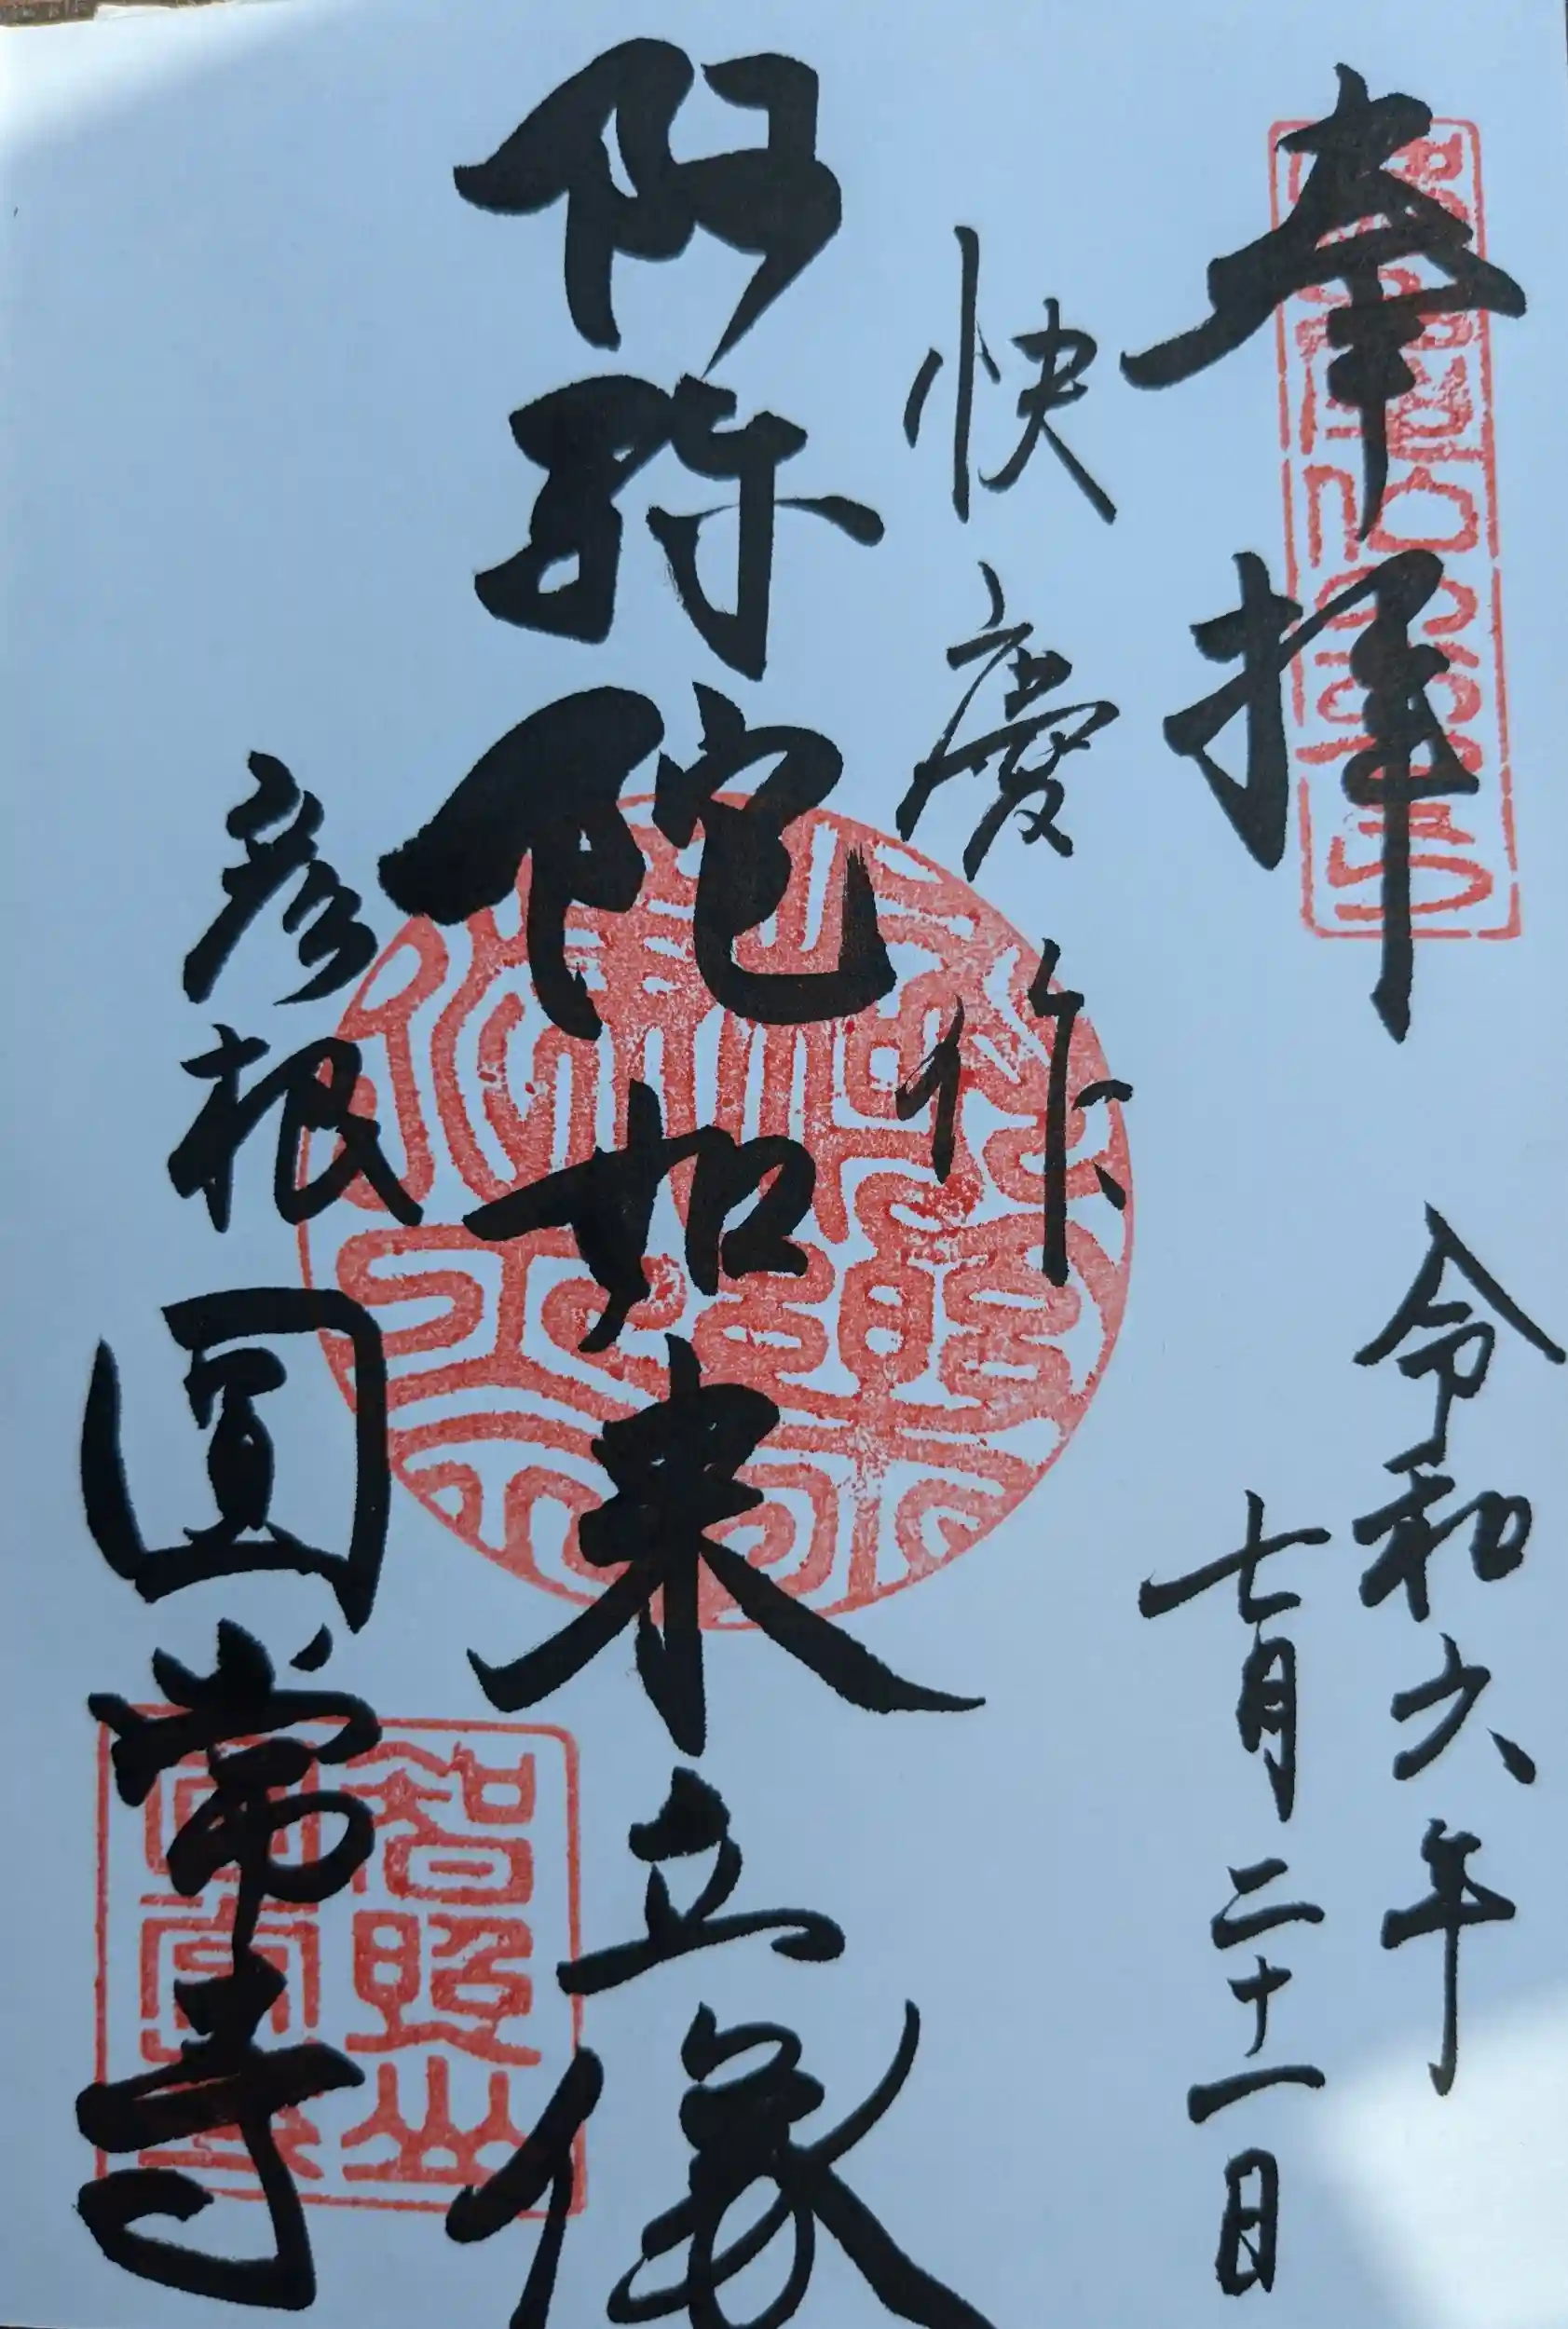 奉拝
令和六年
七月二十一日
快慶作
阿弥陀如来立像
彦根
圓常寺
智照山
圓常寺